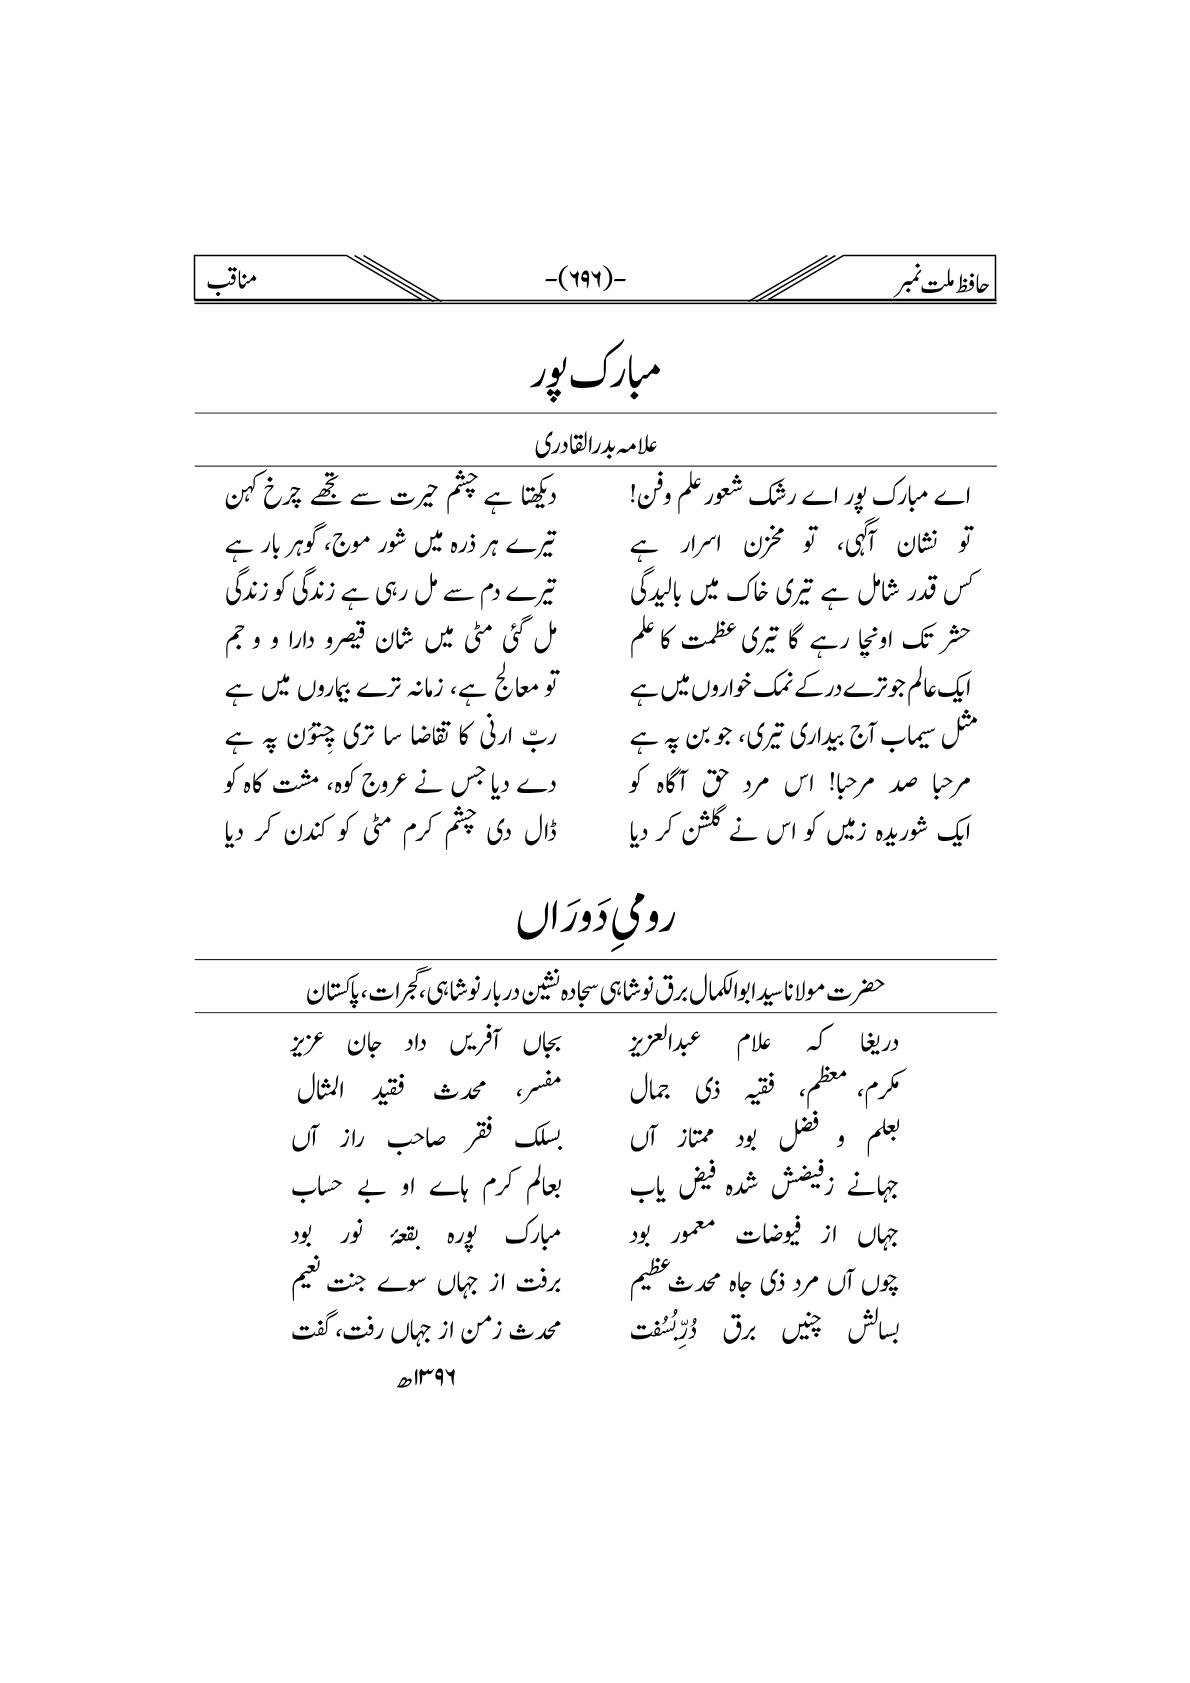 حافظ ملت نمبر -(۶۹۶)- مناقب
مبارک پور
علامہ بدرالقادری
اے مبارک پور اے رشک شعور علم وفن! دیکھتا ہے چشم حیرت سے تجھے چرخ کہن
تو نشان آگہی، تو مخزن اسرار ہے تیرے ہر ذرہ میں شور موج، گوہر بار ہے
کس قدر شامل ہے تیری خاک میں بالیدگی تیرے دم سے مل رہی ہے زندگی کو زندگی
حشر تک اونچا رہے گا تیری عظمت کا علم مل گئی مٹی میں شان قیصرو دارا و و جم
ایک عالم جو ترے در کے نمک خواروں میں ہے تو معالج ہے، زمانہ ترے بیماروں میں ہے
مثل سیماب آج بیداری تیری، جو بن پہ ہے ربّ ارنی کا تقاضا سا تری چِتوَن پہ ہے
مرحبا صد مرحبا! اس مرد حق آگاہ کو دے دیا جس نے عروج کوہ، مشت کاہ کو
ایک شوریدہ زمیں کو اس نے گلشن کر دیا ڈال دی چشم کرم مٹی کو کندن کر دیا
رومیِ دَورَاں
حضرت مولانا سید ابوالکمال برق نوشاہی سجادہ نشین دربار نوشاہی، گجرات، پاکستان
دریغا کہ علام عبدالعزیز بجاں آفریں داد جان عزیز
مکرم، معظم، فقیہ ذی جمال مفسر، محدث فقید المثال
بعلم و فضل بود ممتاز آں بسلک فقر صاحب راز آں
جہانے زفیضش شدہ فیض یاب بعالم کرم ہاے او بے حساب
جہاں از فیوضات معمور بود مبارک پورہ بقعۂ نور بود
چوں آں مرد ذی جاہ محدث عظیم برفت از جہاں سوے جنت نعیم
بسالش چنیں برق دُرِّ بسُفت محدث زمن از جہاں رفت، گفت
۱۳۹۶ھ